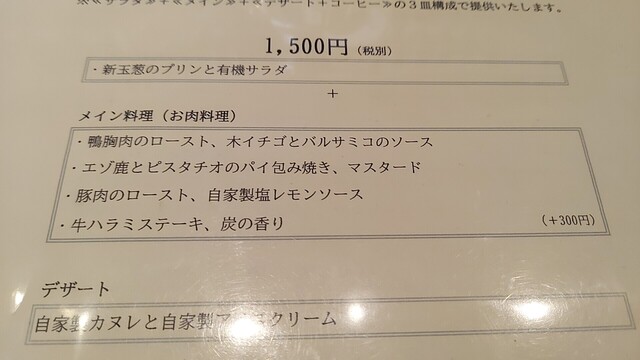 ※≪サラダ≫+≪メイン≫+≪デザート+コーヒー≫の3皿構成で提供いたします。
1,500円(税別)
・新玉葱のプリンと有機サラダ
+
メイン料理(お肉料理)
・鴨胸肉のロースト、木イチゴとバルサミコのソース
・エゾ鹿とピスタチオのパイ包み焼き、マスタード
・豚肉のロースト、自家製塩レモンソース
・牛ハラミステーキ、炭の香り (+300円)
デザート
自家製カヌレと自家製アイスクリーム